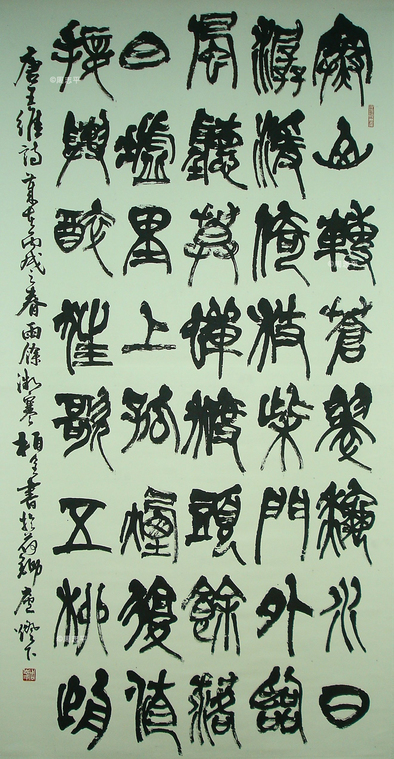 寒山轉蒼翠秋水日
潺湲倚杖柴門外臨
風聽莫蟬渡頭餘落
日墟里上孤煙復值
接輿醉狂歌五柳前
唐王維詩歲在丙戌之春雨餘寒柏書於荷鄉廬燈下